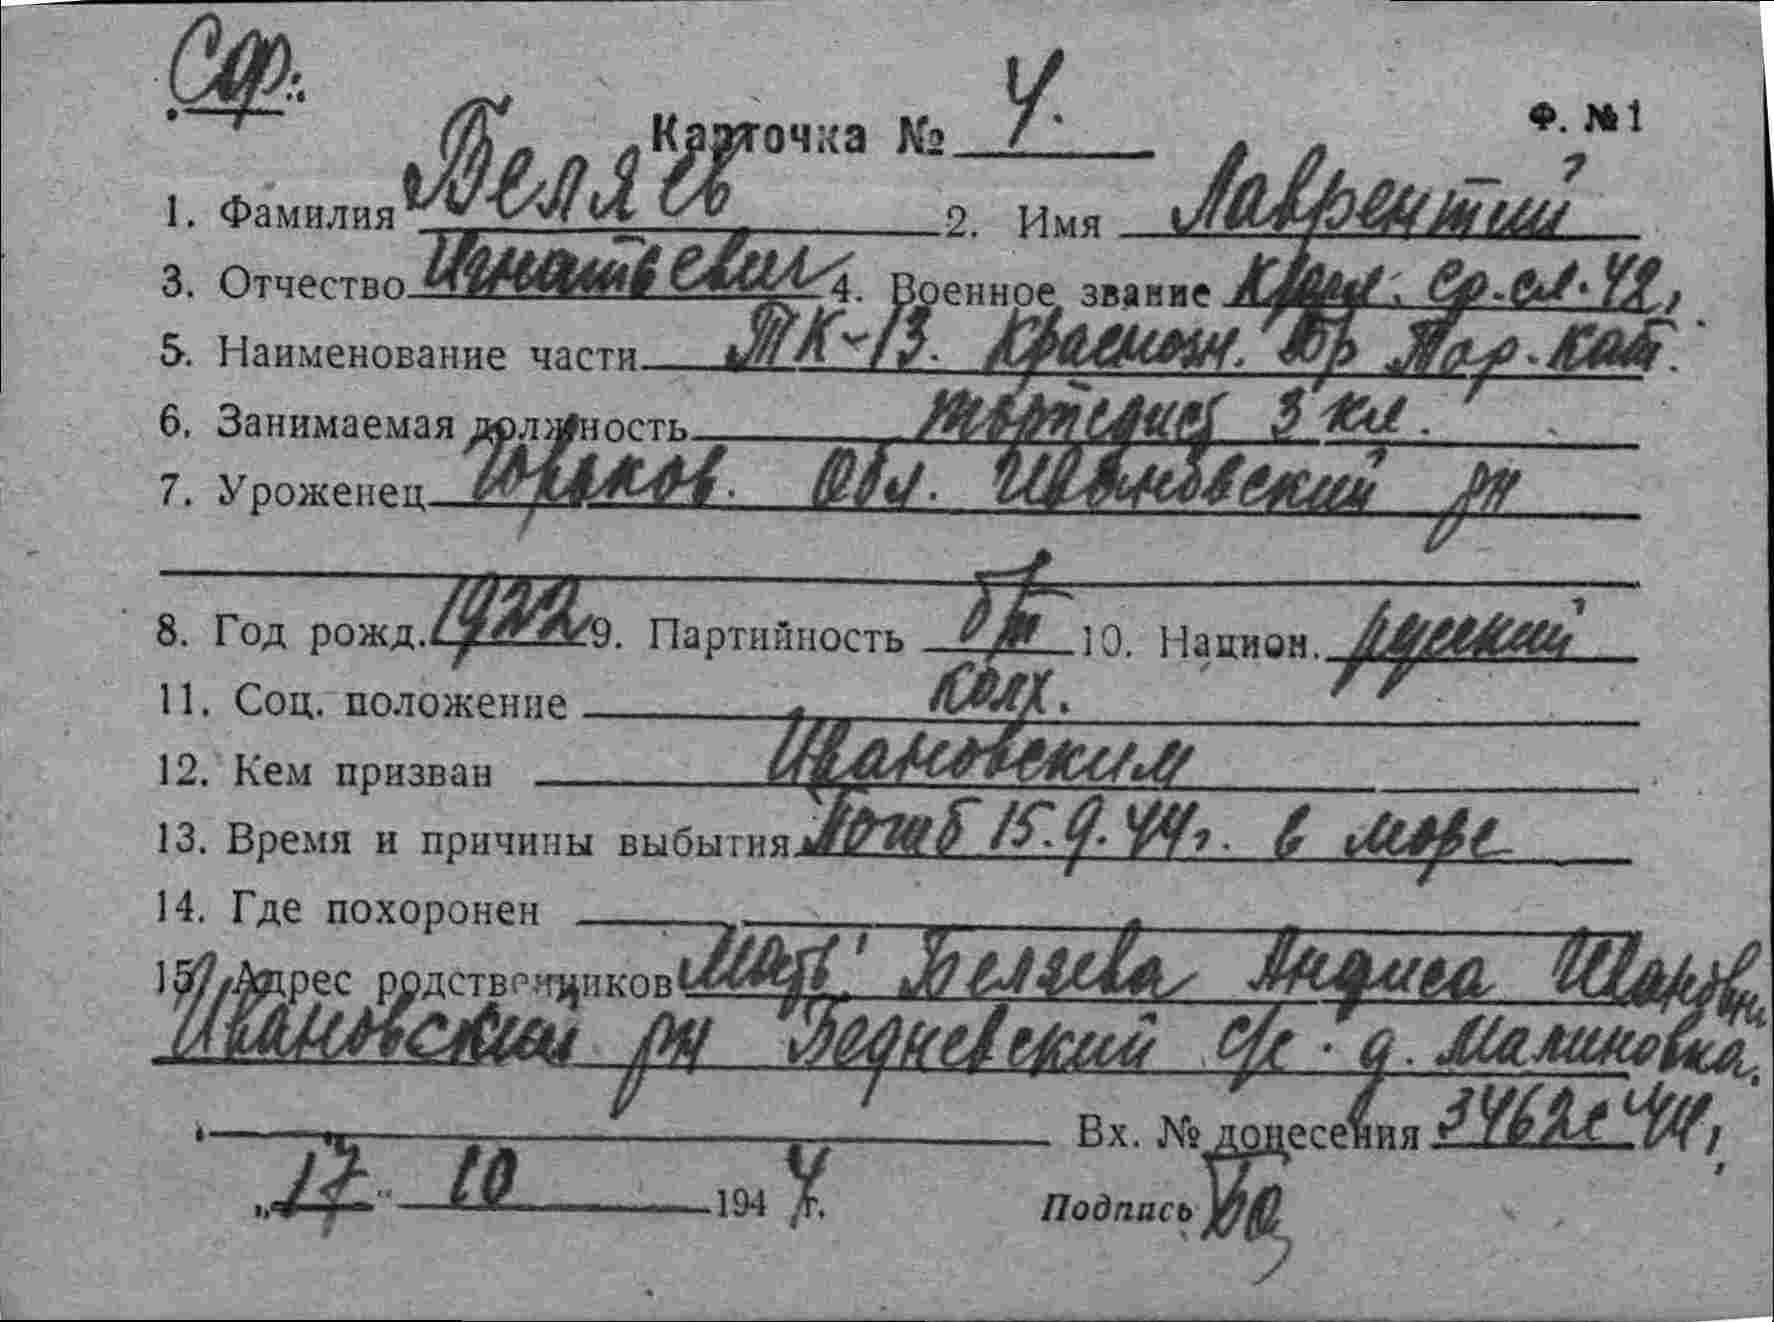 Карточка № 4. Ф. №1
1. Фамилия Беляев 2. Имя Лаврентий
3. Отчество Игнатьевич 4. Военное звание Ср. сл. 42,
5. Наименование части ТК-13. Краснозн. Бр Тор. Кат.
6. Занимаемая должность торпедист 3 кл.
7. Уроженец Горьков. Обл. Ивановский рн
8. Год рожд. 1922 9. Партийность б/п 10. Национ. русский
11. Соц. положение колх.
12. Кем призван Ивановским
13. Время и причины выбытия Погиб 15.9.44г. в море
14. Где похоронен
15. Адрес родственников Мать Беляева Анфиса Ивановн.
Ивановский рн Бедневский с/с. д. Малиновка.
Вх. № донесения 3462с 44,
„17" 10 1944г. Подпись